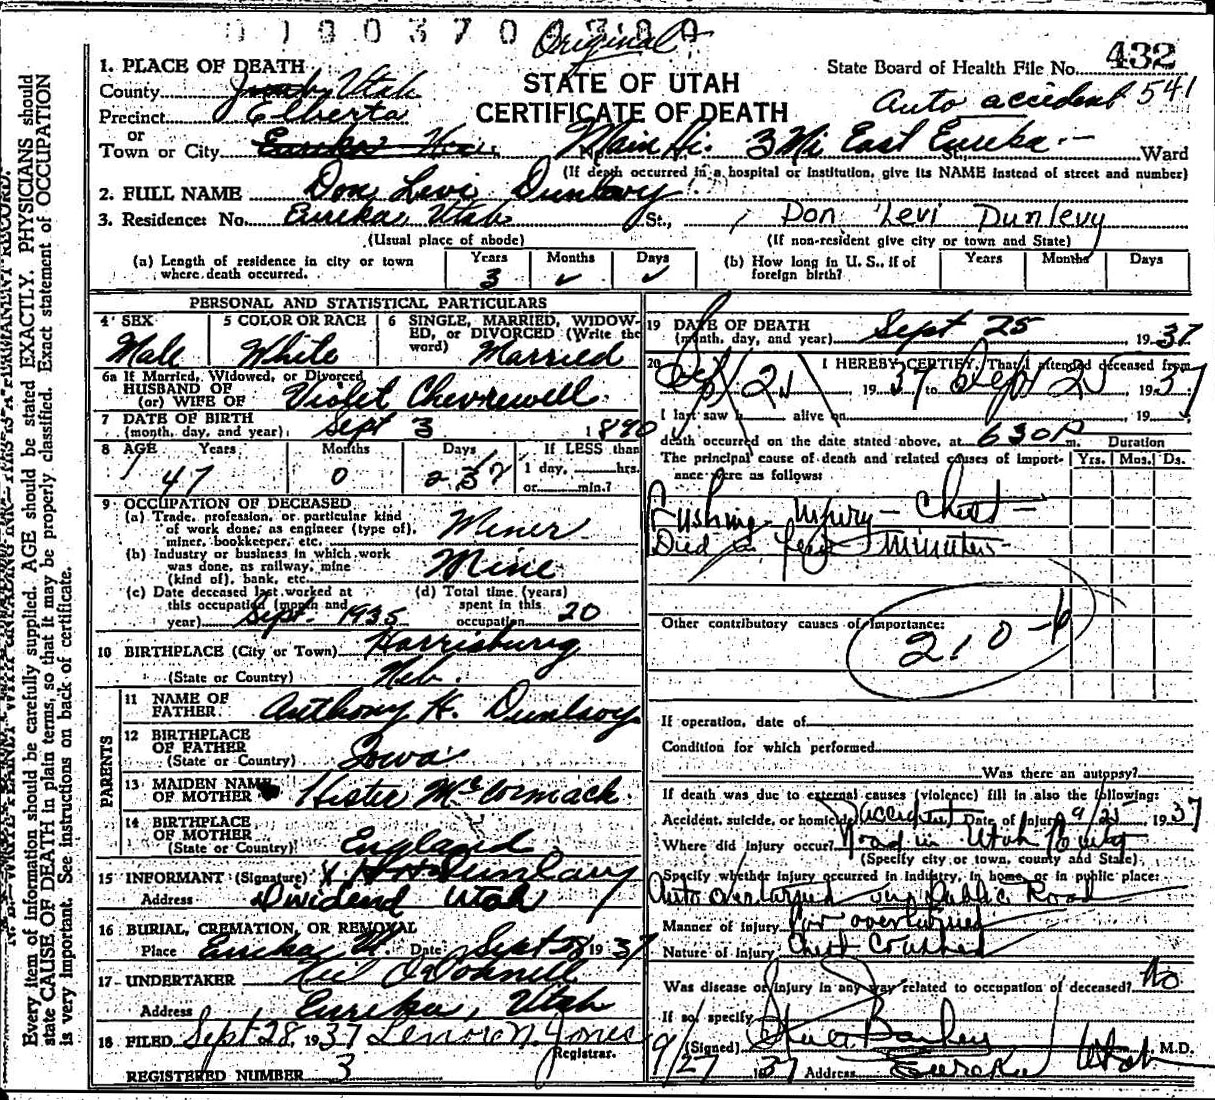 0180370 0789
Original
432
1. PLACE OF DEATH
STATE OF UTAH
State Board of Health File No.
County Juab Utah
CERTIFICATE OF DEATH
Auto accident 541
Precinct Elberta
or
Town or City Eureka No. Main Hi. 3 Mi East Eureka St., Ward
(If death occurred in a hospital or institution, give its NAME instead of street and number)
2. FULL NAME Don Levi Dunlavy
3. Residence: No. Eureka, Utah St., Don Levi Dunlevy
(Usual place of abode) (If non-resident give city or town and State)
(a) Length of residence in city or town where death occurred. Years 3 Months ✓ Days ✓
(b) How long in U. S., if of foreign birth? Years Months Days
PERSONAL AND STATISTICAL PARTICULARS
4 SEX Male
5 COLOR OR RACE White
6 SINGLE, MARRIED, WIDOWED, or DIVORCED (Write the word) Married
6a If Married, Widowed, or Divorced
HUSBAND OF
(or) WIFE OF Violet Chevrewell
7 DATE OF BIRTH
(month, day, and year) Sept 3 1890
8 AGE Years 47 Months 0 Days 22 If LESS than
1 day, hrs.
or min.?
9 OCCUPATION OF DECEASED
(a) Trade, profession, or particular kind
of work done, as engineer (type of),
miner, bookkeeper, etc. Miner
(b) Industry or business in which work
was done, as railway, mine
(kind of), bank, etc. Mine
(c) Date deceased last worked at
this occupation (month and
year) Sept. 1935
(d) Total time (years)
spent in this
occupation 20
10 BIRTHPLACE (City or Town) Harrisburg
(State or Country) Neb.
PARENTS
11 NAME OF
FATHER Anthony H. Dunlavy
12 BIRTHPLACE
OF FATHER
(State or Country) Iowa
13 MAIDEN NAME
OF MOTHER Hester McCormack
14 BIRTHPLACE
OF MOTHER
(State or Country) England
15 INFORMANT (Signature) X Dunlavy
Address Dividend Utah
16 BURIAL, CREMATION, OR REMOVAL
Place Eureka Ut. Date Sept 28 1937
17 UNDERTAKER O'Donnell
Address Eureka, Utah
18 FILED Sept 28, 1937 Jones
Registrar.
REGISTERED NUMBER 3
19 DATE OF DEATH
(month, day, and year) Sept 25, 1937
20 I HEREBY CERTIFY, That I attended deceased from
1937 to Sept 25 1937
I last saw h alive on 19
death occurred on the date stated above, at 630 P m. Duration
The principal cause of death and related causes of importance were as follows: Yrs. Mos. Ds.
Crushing Injury - Chest
Died in few minutes
Other contributory causes of importance:
210-b
If operation, date of
Condition for which performed
Was there an autopsy?
If death was due to external causes (violence) fill in also the following:
Accident, suicide, or homicide? accident Date of injury 9/25 1937
Where did injury occur? Road in Utah County
(Specify city or town, county and State)
Specify whether injury occurred in industry, in home, or in public place:
Auto overturned on Public Road
Manner of injury Car overturned
Nature of injury Chest crushed
Was disease or injury in any way related to occupation of deceased? No
If so, specify
(Signed) Bailey, M.D.
9/27 1937 Address Eureka Utah
Every item of information should be carefully supplied. AGE should be stated EXACTLY. PHYSICIANS should
state CAUSE OF DEATH in plain terms, so that it may be properly classified. Exact statement of OCCUPATION
is very important. See instructions on back of certificate.